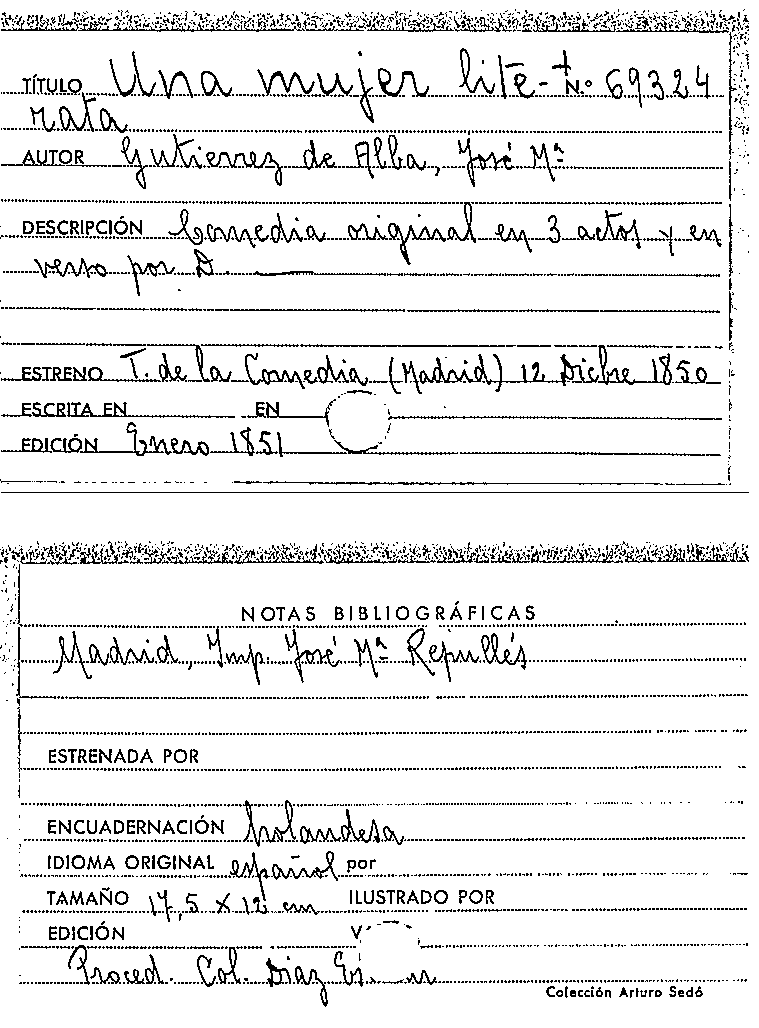 TÍTULO Una mujer lite- N.º 69324
rata
AUTOR Gutierrez de Alba, José Mª
DESCRIPCIÓN Comedia original en 3 actos y en
verso por D. ——
ESTRENO T. de la Comedia (Madrid) 12 Dicbre 1850
ESCRITA EN EN
EDICIÓN Enero 1851
NOTAS BIBLIOGRÁFICAS
Madrid, Imp. José Mª Repullés
ESTRENADA POR
ENCUADERNACIÓN holandesa
IDIOMA ORIGINAL español por
TAMAÑO 17,5 X 12 cm ILUSTRADO POR
EDICIÓN
Proced. Col. Diaz
Colección Arturo Sedó